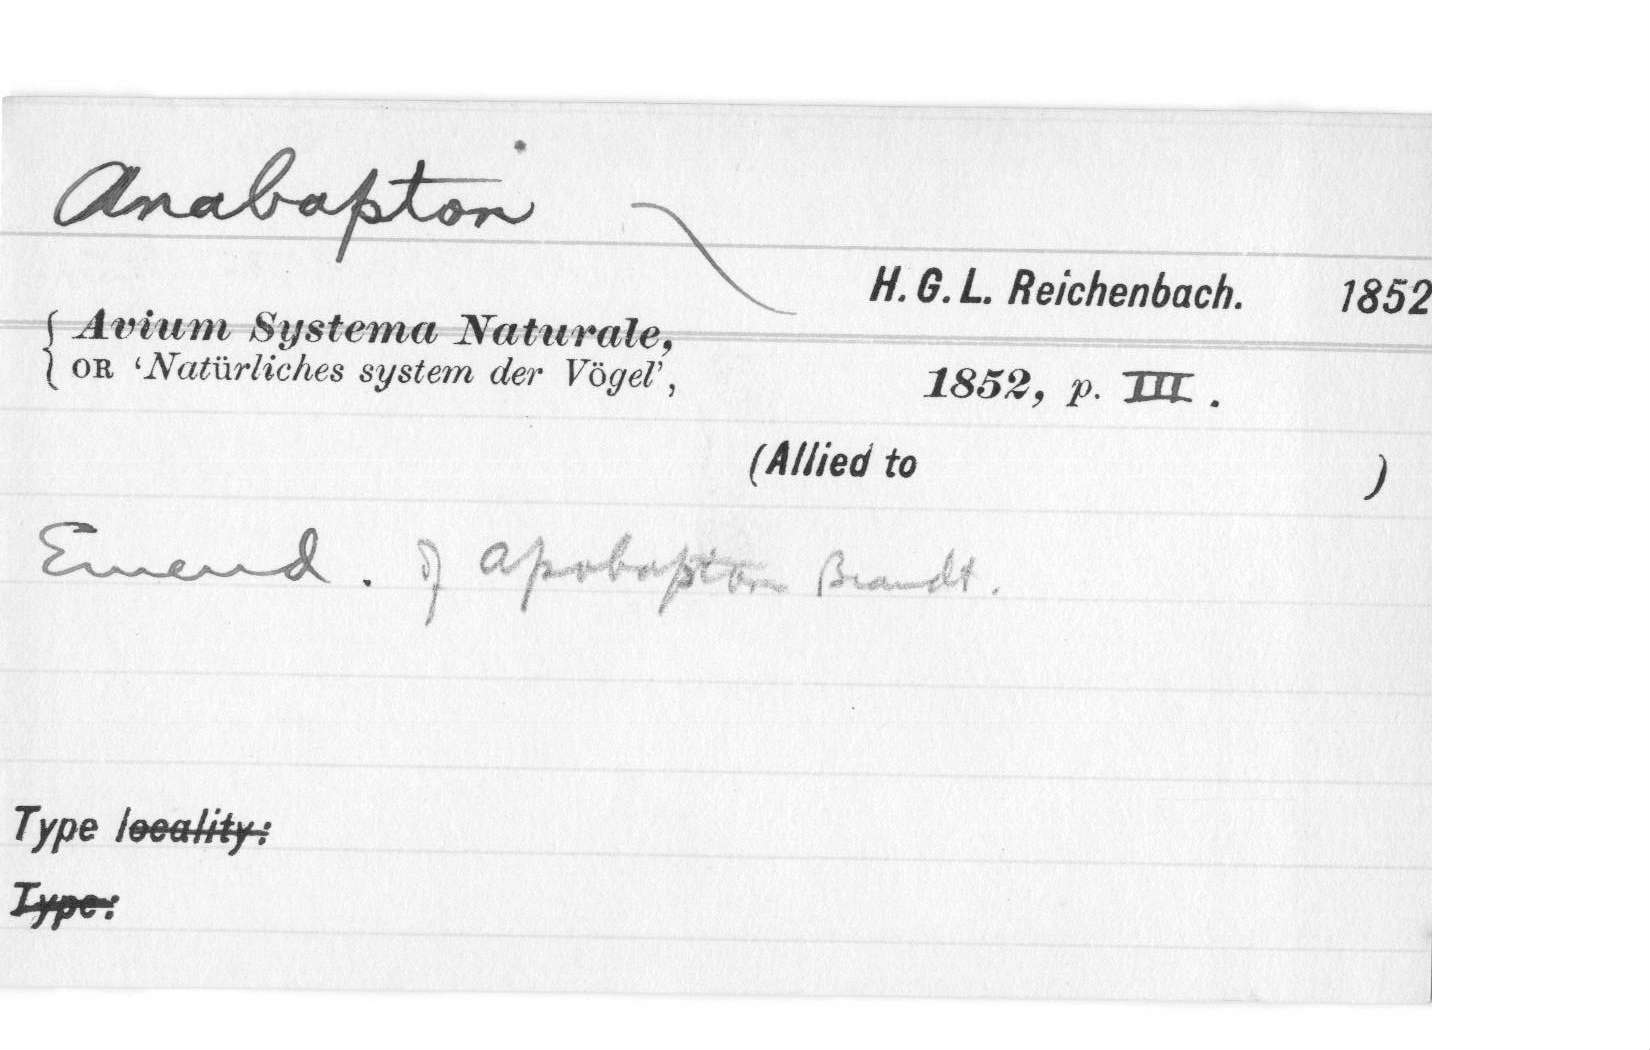 Anabapton
H. G. L. Reichenbach. 1852
{ Avium Systema Naturale,
OR 'Natürliches system der Vögel', 1852, p. III.
(Allied to )
Emend. of Apobapton Brandt.
Type locality:
Type: